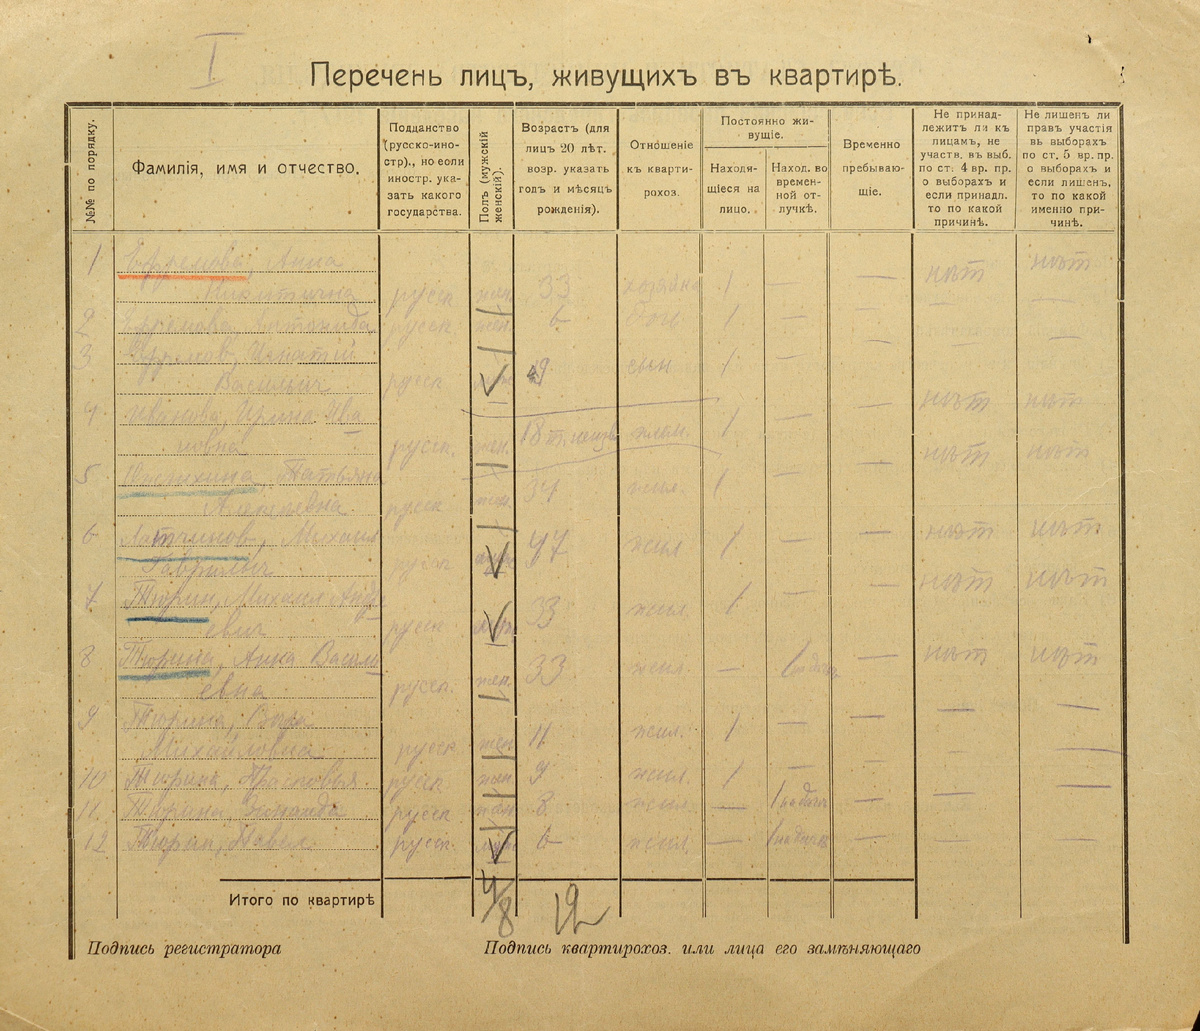 I
Перечень лицъ, живущихъ въ квартирѣ.
№№ по порядку.
Фамилія, имя и отчество.
Подданство
(русско-ино-
стр)., но если
иностр. ука-
зать какого
государства.
Полъ (мужскій
женскій).
Возрастъ (для
лицъ 20 лѣт.
возр. указать
годъ и мѣсяцъ
рожденія).
Отношеніе
къ кварти-
рохоз.
Постоянно жи-
вущіе.
Находя-
щіеся на
лицо.
Наход. во
времен-
ной от-
лучкѣ.
Временно
пребываю-
щіе.
Не принад-
лежитъ ли къ
лицамъ, не
участв. въ выб.
по ст. 4 вр. пр.
о выборахъ и
если принадл.
то по какой
причинѣ.
Не лишенъ ли
правъ участія
въ выборахъ
по ст. 5 вр. пр.
о выборахъ и
если лишенъ,
то по какой
именно при-
чинѣ.
1 Ефремова, Анна
Никитична русск. жен. 33 хозяйка 1 — — нѣт нѣт
2 Ефремова русск. жен. 6 дочь 1 — — — —
3 Ефремов, Игнатій
Васильич русск. 9 сын 1 — — — —
4 Иванова, Ирина Ива
новна русск. жен. 18 жил. 1 — — нѣт нѣт
5 Татьяна
русск. жен. 37 жил. 1 — — нѣт нѣт
6 Михаил
Гаврилыч русск. 47 жил 1 — — нѣт нѣт
7 Тюрин, Михаил Андр
евич русск. 33 жил. 1 — — нѣт нѣт
8 Тюрина, Анна Василь
евна русск. жен. 33 жил. — 1 — нѣт нѣт
9 Тюрина, Вѣра
Михайловна русск. жен 11 жил. 1 — — — —
10 Тюрина, Прасковья русск. жен. 9 жил. 1 — — — —
11. Тюрина, Зинаида русск. жен. 8 жил. — 1 на дачѣ — — —
12 Тюрин, Павел. русск. 6 жил. — 1 на дачѣ — — —
Итого по квартирѣ 4/8 12
Подпись регистратора
Подпись квартирохоз. или лица его замѣняющаго